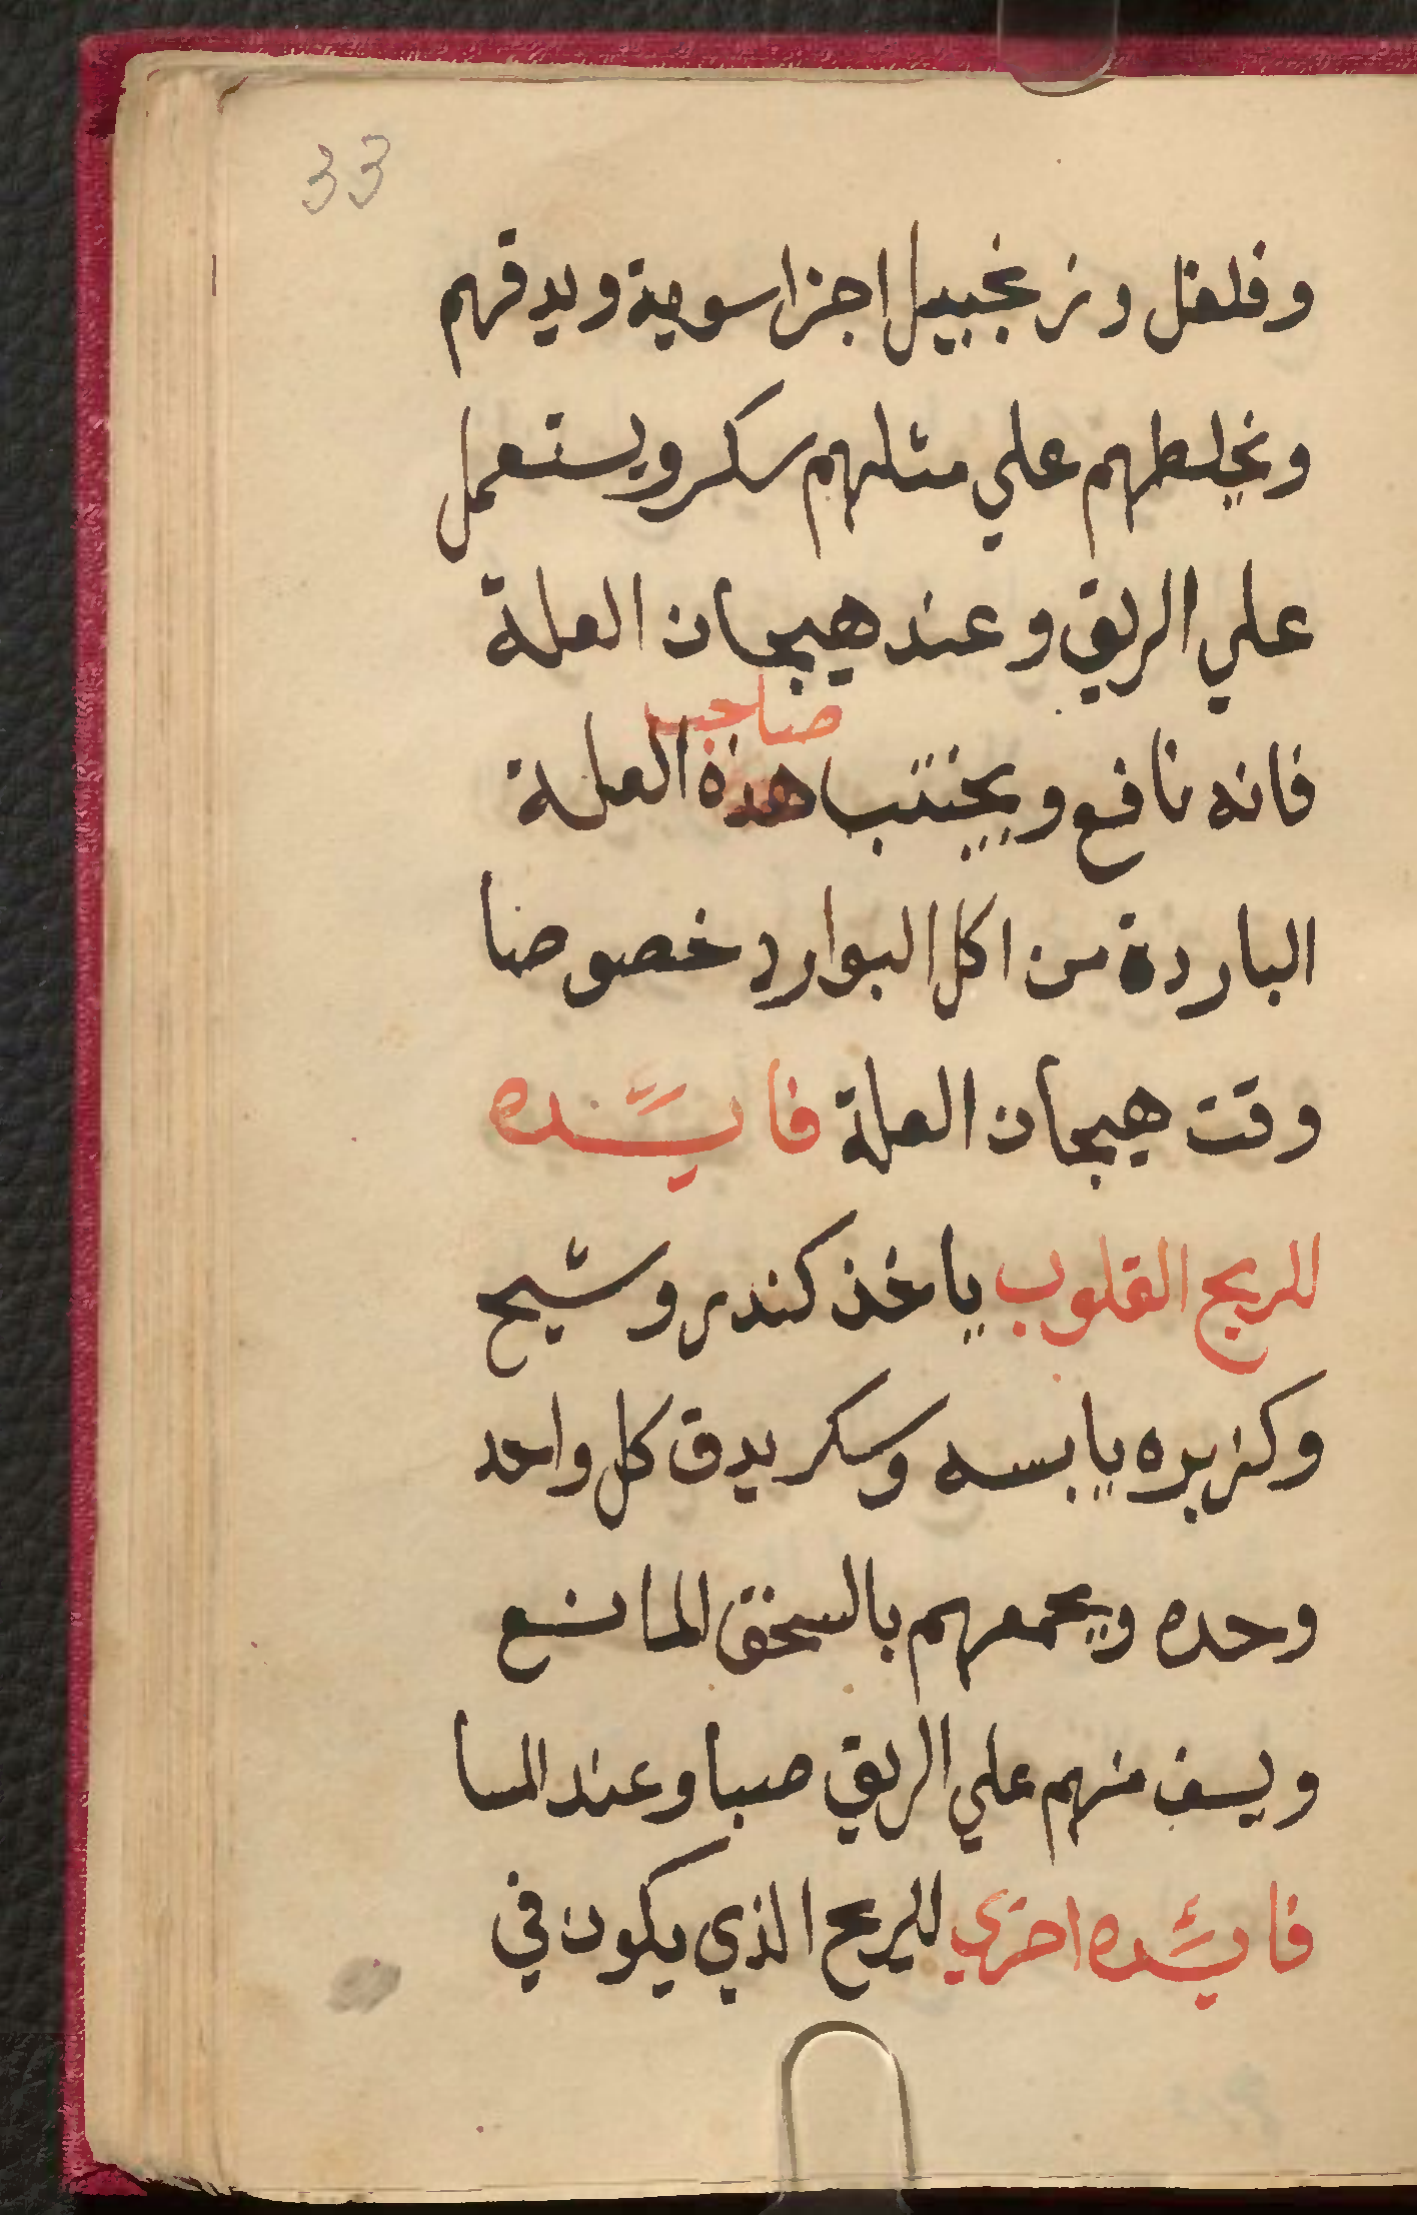 33
وفلفل وزنجبيل اجزا سوية ويدقهم
ويخلطهم علي مثلهم سكر ويستعمل
علي الريق وعند هيجان العلة
صاحب
فانه نافع ويجتنب هذة العلة
الباردة من اكل البوارد خصوصا
وقت هيجان العلة فايده
للريح القلوب ياخذ كندر وشيح
وكزبره يابسه وسكر يدق كل واحد
وحده ويجمعهم بالسحق
ويسف منهم علي الريق صبا وعند المسا
فايده اخري للريح الذي يكون في